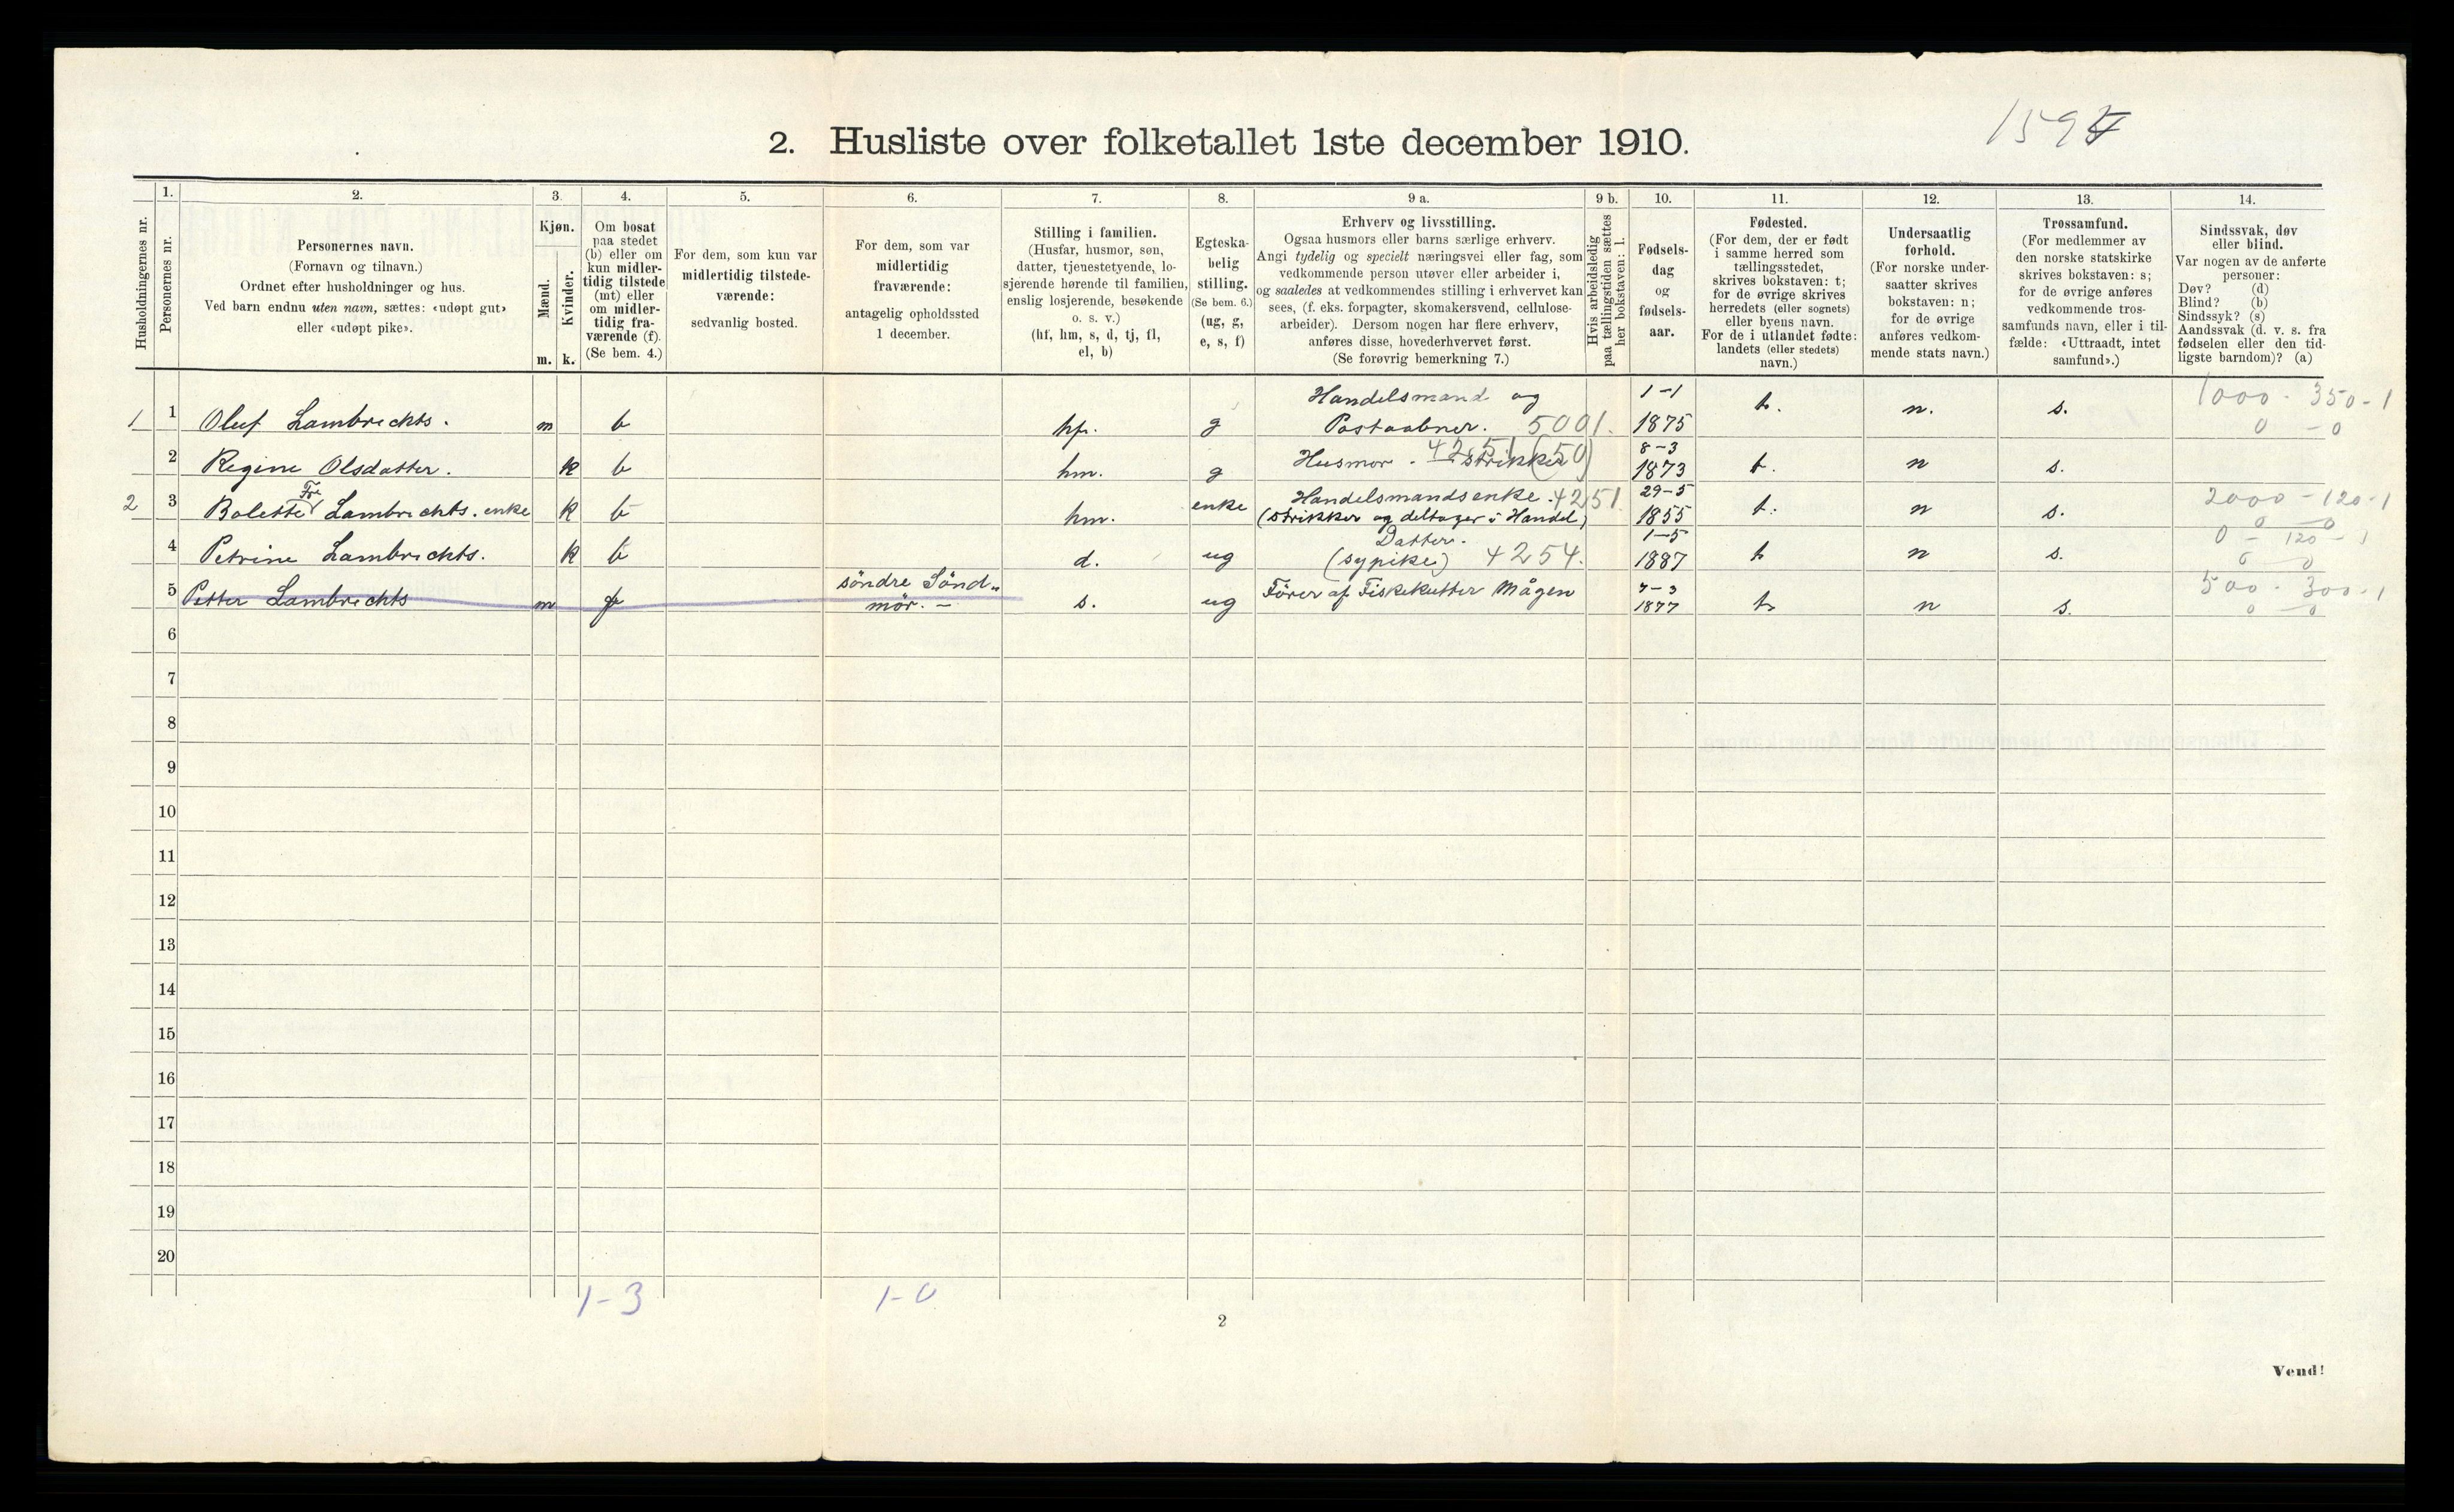 2. Husliste over folketallet 1ste december 1910.
Husholdningernes nr.
1.
Personernes nr.
2.
Personernes navn.
(Fornavn og tilnavn.)
Ordnet efter husholdninger og hus.
Ved barn endnu uten navn, sættes: «udøpt gut»
eller «udøpt pike».
3.
Kjøn.
Mænd.
Kvinder.
m. k.
4.
Om bosat
paa stedet
(b) eller om
kun midler-
tidig tilstede
(mt) eller
om midler-
tidig fra-
værende (f).
(Se bem. 4.)
5.
For dem, som kun var
midlertidig tilstede-
værende:
sedvanlig bosted.
6.
For dem, som var
midlertidig
fraværende:
antagelig opholdssted
1 december.
7.
Stilling i familien.
(Husfar, husmor, søn,
datter, tjenestetyende, lo-
sjerende hørende til familien,
enslig losjerende, besøkende
o. s. v.)
(hf, hm, s, d, tj, fl,
el, b)
8.
Egteska-
belig
stilling.
(Se bem. 6.)
(ug, g,
e, s, f)
9 a.
Erhverv og livsstilling.
Ogsaa husmors eller barns særlige erhverv.
Angi tydelig og specielt næringsvei eller fag, som
vedkommende person utøver eller arbeider i,
og saaledes at vedkommendes stilling i erhvervet kan
sees, (f. eks. forpagter, skomakersvend, cellulose-
arbeider). Dersom nogen har flere erhverv,
anføres disse, hovederhvervet først.
(Se forøvrig bemerkning 7.)
9 b.
Hvis arbeidsledig
paa tællingstiden sættes
her bokstaven: l.
10.
Fødsels-
dag
og
fødsels-
aar.
11.
Fødested.
(For dem, der er født
i samme herred som
tællingsstedet,
skrives bokstaven: t;
for de øvrige skrives
herredets (eller sognets)
eller byens navn.
For de i utlandet fødte:
landets (eller stedets)
navn.)
12.
Undersaatlig
forhold.
(For norske under-
saatter skrives
bokstaven: n;
for de øvrige
anføres vedkom-
mende stats navn.)
13.
Trossamfund.
(For medlemmer av
den norske statskirke
skrives bokstaven: s;
for de øvrige anføres
vedkommende tros-
samfunds navn, eller i til-
fælde: «Uttraadt, intet
samfund».)
14.
Sindssvak, døv
eller blind.
Var nogen av de anførte
personer:
Døv? (d)
Blind? (b)
Sindssyk? (s)
Aandssvak (d. v. s. fra
fødselen eller den tid-
ligste barndom)? (a)
Handelsmand og 1-1 1000 - 350-1
1 1 Oluf Lambrechts. m b hf. g Postaabner. 5001. 1875 t. n. s. 0 - 0
8-3
2 Regine Olsdatter. k b hm. g Husmor. - strikker 4251 (50) 1873 t. n s.
Fre Handelsmandsenke. 4251. 29-5 2000 - 120-1
2 3 Bolette Lambrechts. enke k b hm. enke (strikker og deltager i Handel) 1855 t. n s. 0 - 0
Datter. 1-5 0 - 120 - 1
4 Petrine Lambrechts. k b d. ug (sypike) 4254. 1887 t n s. 0 0
söndre Sönd- 7-3 500 - 300-1
5 Petter Lambrechts m f mör. - s. ug Förer af Fiskekutter Mågen 1877 t n s. 0 - 0
6
7
8
9
10
11
12
13
14
15
16
17
18
19
20
1-3 1-0
2
Vend!